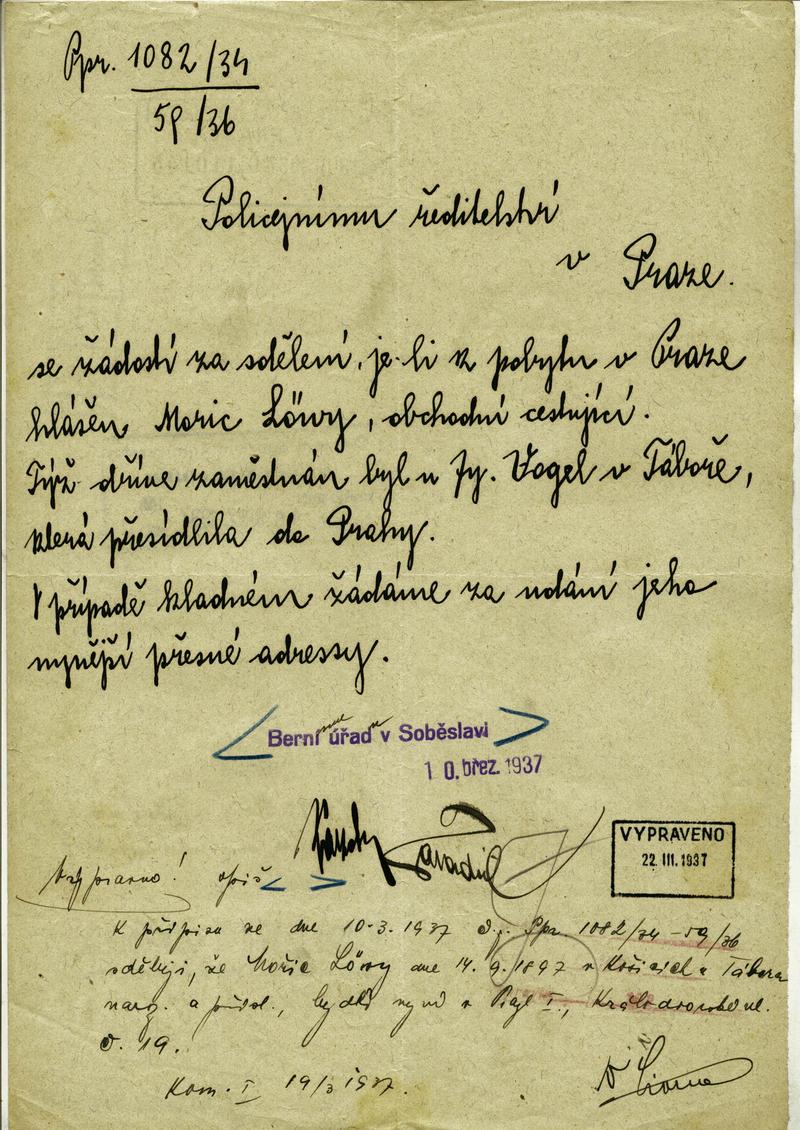 Ppr. 1082/34
59/36
Policejnímu ředitelství
v Praze.
se žádostí za sdělení, je-li k pobytu v Praze
hlášen Moric Löwy, obchodní cestující.
Týž dříve zaměstnán byl u fy. Vogel v Táboře,
která přesídlila do Prahy.
V případě kladném žádáme za udání jeho
nynější přesné adressy.
Berní úřad v Soběslavi
10. břez. 1937
VYPRAVENO
22. III. 1937
opis
K přípisu ze dne 10.3.1937 č.j. Ppr. 1082/34 - 59/36
sděluji, že Mořic Löwy dne 14.9.1897 v Košicích u Tábora
nar. a přísl., bydlí nyní v Praze I., Králodvorské ul.
č. 19.
Kom. I 19/3 1937.